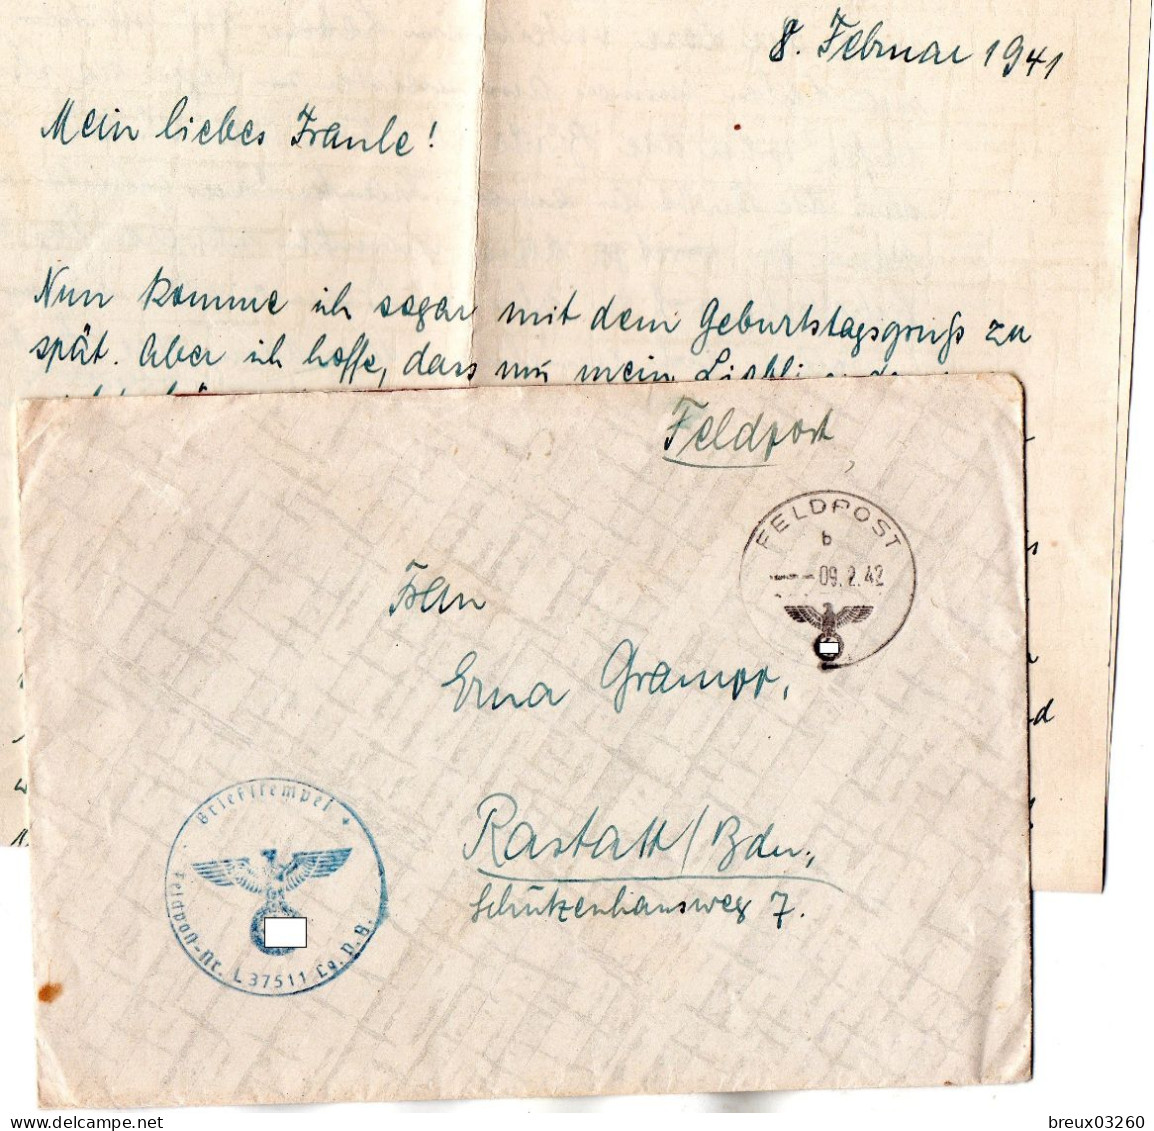 8. Februar 1941
Mein liebes Fraule!
Nun komme ich sogar mit dem Geburtstagsgruß zu
spät. Aber ich hoffe, dass mir mein
Feldpost
FELDPOST
b
09.2.42
Frau
Erna Grampp,
Rastatt/Bden.,
Schützenhausweg 7.
Briefstempel
Feldpost-Nr. L 37511 Lg. P. A.
breux03260